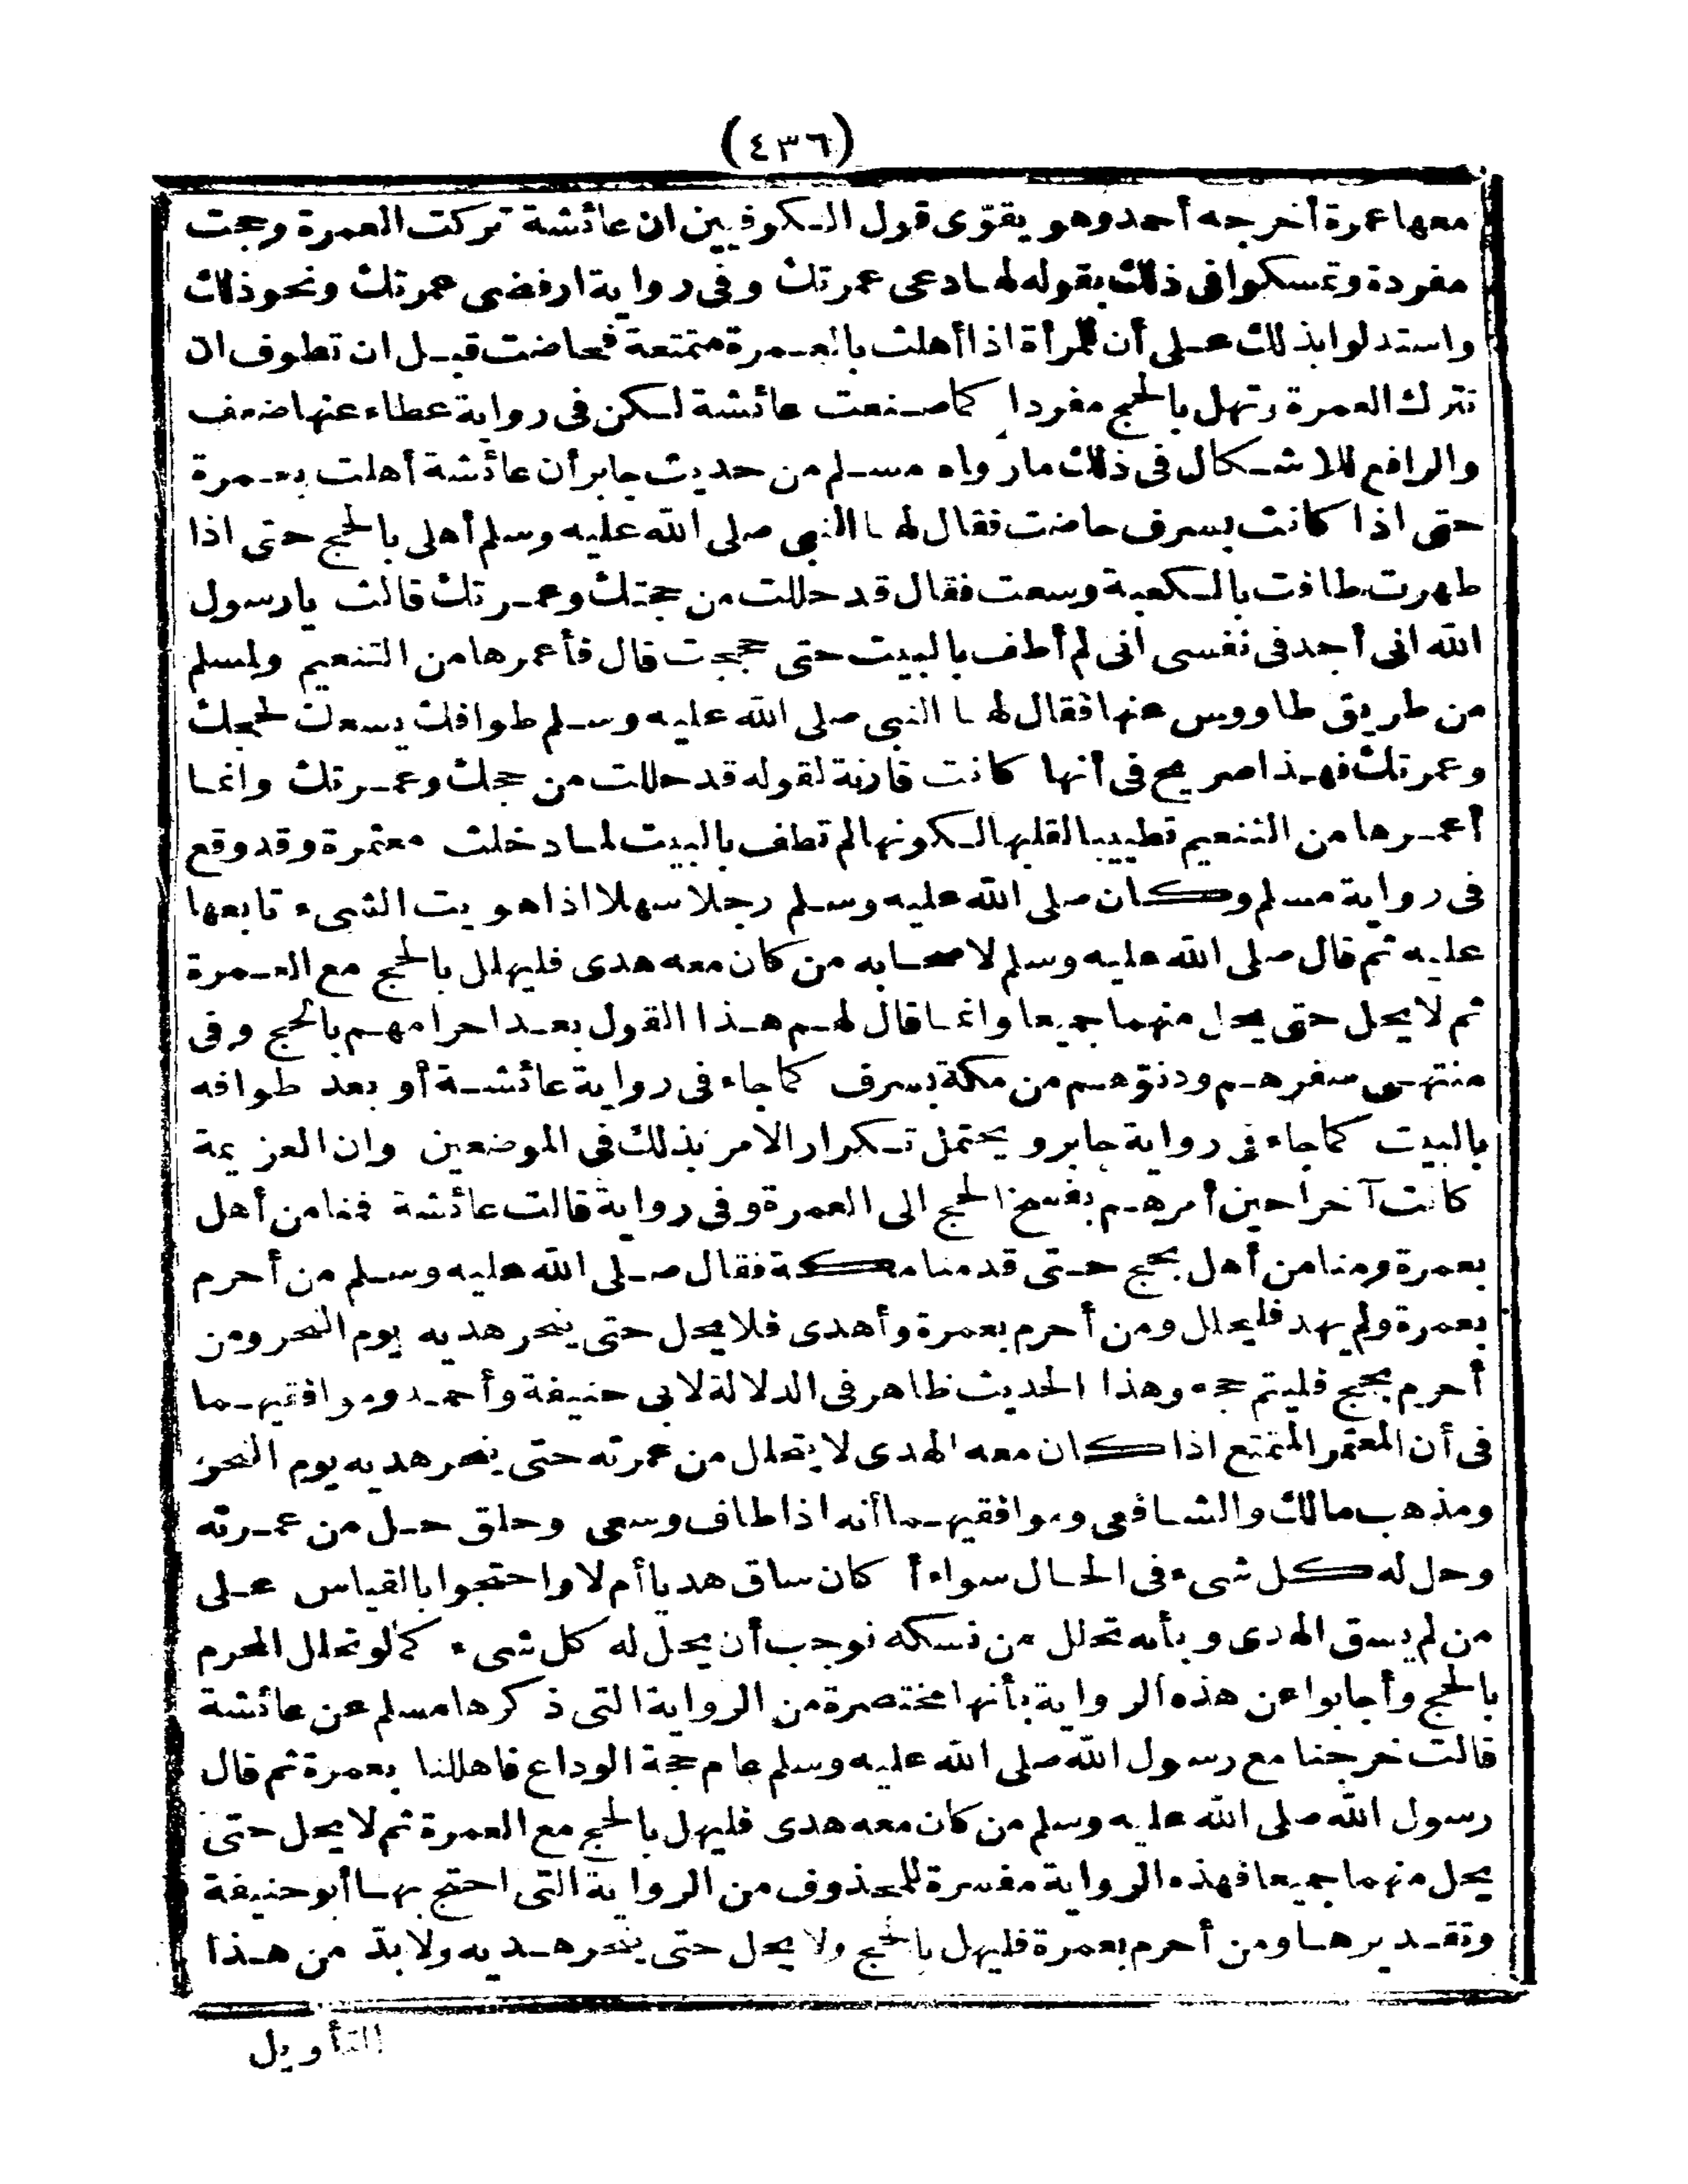 (٤٣٦)
معها عمرة أخرجه أحمد وهو يقوّى قول الكوفيين ان عائشة تركت العمرة وحجت
مفردة وتمسكوا فى ذلك بقوله لها دعى عمرتك وفى رواية ارفضى عمرتك ونحو ذلك
واستدلوا بذلك على أن للمرأة اذا أهلت بالعمرة متمتعة فحاضت قبل ان تطوف ان
تترك العمرة وتهل بالحج مفردا كما صنعت عائشة لكن فى رواية عطاء عنها ضعف
والرافع للاشكال فى ذلك مارواه مسلم من حديث جابر أن عائشة أهلت بعمرة
حتى اذا كانت بسرف حاضت فقال لها النبى صلى الله عليه وسلم أهلى بالحج حتى اذا
طهرت طافت بالكعبة وسعت فقال قد حللت من حجتك وعمرتك قالت يارسول
الله انى أجد فى نفسى انى لم أطف بالبيت حتى حججت قال فأعمرها من التنعيم ولمسلم
من طريق طاووس عنها فقال لها النبى صلى الله عليه وسلم طوافك يسعك لحجك
وعمرتك فهذا صريح فى أنها كانت قارنة لقوله قد حللت من حجك وعمرتك وانما
أعمرها من التنعيم تطييبا لقلبها لكونها لم تطف بالبيت لما دخلت معتمرة وقد وقع
فى رواية مسلم وكان صلى الله عليه وسلم رجلا سهلا اذا هويت الشىء تابعها
عليه ثم قال صلى الله عليه وسلم لاصحابه من كان معه هدى فليهلل بالحج مع العمرة
ثم لا يحل حتى يحل منهما جميعا وانما قال لهم هذا القول بعد احرامهم بالحج وفى
منتهى سفرهم ودنوّهم من مكة بسرف كما جاء فى رواية عائشة أو بعد طوافه
بالبيت كما جاء فى رواية جابر و يحتمل تكرار الامر بذلك فى الموضعين وان العزيمة
كانت آخرا حين أمرهم بفسخ الحج الى العمرة وفى رواية قالت عائشة فمنا من أهل
بعمرة ومنا من أهل بحج حتى قدمنا مكة فقال صلى الله عليه وسلم من أحرم
بعمرة ولم يهد فليحلل ومن أحرم بعمرة وأهدى فلا يحل حتى ينحر هديه يوم النحر ومن
أحرم بحج فليتم حجه وهذا الحديث ظاهر فى الدلالة لابى حنيفة وأحمد وموافقيهما
فى أن المعتمر المتمتع اذا كان معه الهدى لا يتحلل من عمرته حتى ينحر هديه يوم النحر
ومذهب مالك والشافعى وموافقيهما أنه اذا طاف وسعى وحلق حل من عمرته
وحل له كل شىء فى الحال سواء أ كان ساق هديا أم لا واحتجوا بالقياس على
من لم يسق الهدى و بأنه تحلل من نسكه فوجب أن يحل له كل شىء كما لو تحلل المحرم
بالحج وأجابوا عن هذه الرواية بأنها مختصرة من الرواية التى ذكرها مسلم عن عائشة
قالت خرجنا مع رسول الله صلى الله عليه وسلم عام حجة الوداع فاهللنا بعمرة ثم قال
رسول الله صلى الله عليه وسلم من كان معه هدى فليهل بالحج مع العمرة ثم لا يحل حتى
يحل منهما جميعا فهذه الرواية مفسرة للمحذوف من الرواية التى احتج بها أبو حنيفة
وتقديرها ومن أحرم بعمرة فليهل بالحج ولا يحل حتى ينحر هديه ولا بدّ من هذا
التأويل